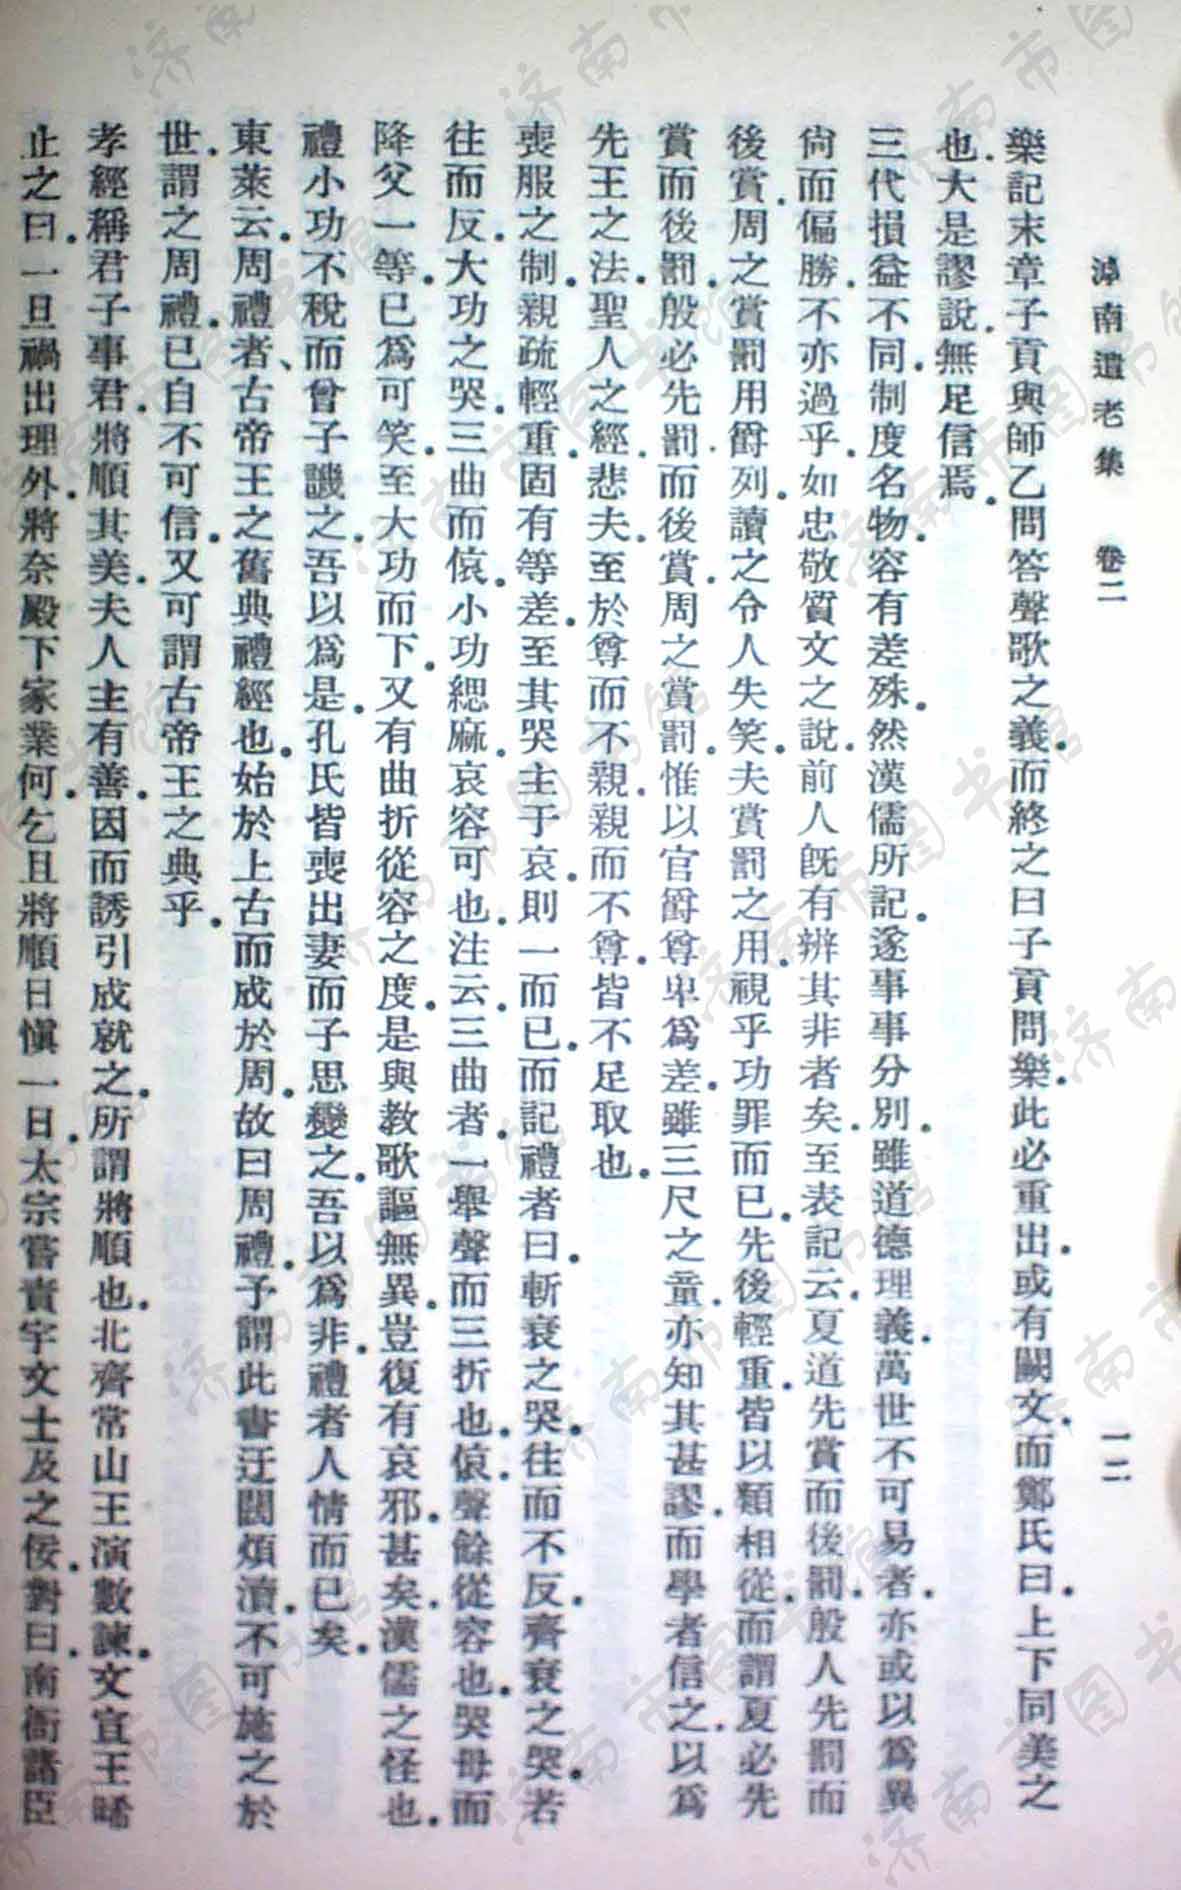 滹南遺老集　卷二　一二
樂記末章子貢與師乙問答聲歌之義．而終之曰子貢問樂．此必重出．或有闕文．而鄭氏曰．上下同美之
也．大是謬說．無足信焉．
三代損益不同．制度名物．容有差殊．然漢儒所記．遂事事分別．雖道德理義．萬世不可易者．亦或以爲異
尙而偏勝．不亦過乎．如忠敬質文之說．前人旣有辨其非者矣．至表記云．夏道先賞而後罰．殷人先罰而
後賞．周之賞罰用爵列．讀之令人失笑．夫賞罰之用．視乎功罪而已．先後輕重．皆以類相從．而謂夏必先
賞而後罰．殷必先罰而後賞．周之賞罰．惟以官爵尊卑爲差．雖三尺之童．亦知其甚謬．而學者信之．以爲
先王之法．聖人之經．悲夫．至於尊而不親．親而不尊．皆不足取也．
喪服之制．親疏輕重．固有等差．至其哭主于哀．則一而已．而記禮者曰．斬衰之哭．往而不反．齊衰之哭．若
往而反．大功之哭．三曲而偯．小功緦麻．哀容可也．注云．三曲者．一舉聲而三折也．偯．聲餘從容也．哭母而
降父一等．已爲可笑．至大功而下．又有曲折從容之度．是與教歌謳無異．豈復有哀邪．甚矣．漢儒之怪也．
禮小功不稅．而曾子譏之．吾以爲是．孔氏皆喪出妻而子思變之．吾以爲非．禮者人情而已矣．
東萊云．周禮者、古帝王之舊典禮經也．始於上古而成於周．故曰周禮．予謂此書迂闊煩瀆．不可施之於
世．謂之周禮．已自不可信．又可謂古帝王之典乎．
孝經稱君子事君．將順其美．夫人主有善．因而誘引成就之．所謂將順也．北齊常山王演數諫．文宣王晞
止之曰．一旦禍出理外．將奈殿下家業何．乞且將順日愼一日．太宗嘗責宇文士及之佞．對曰．南衙諸臣